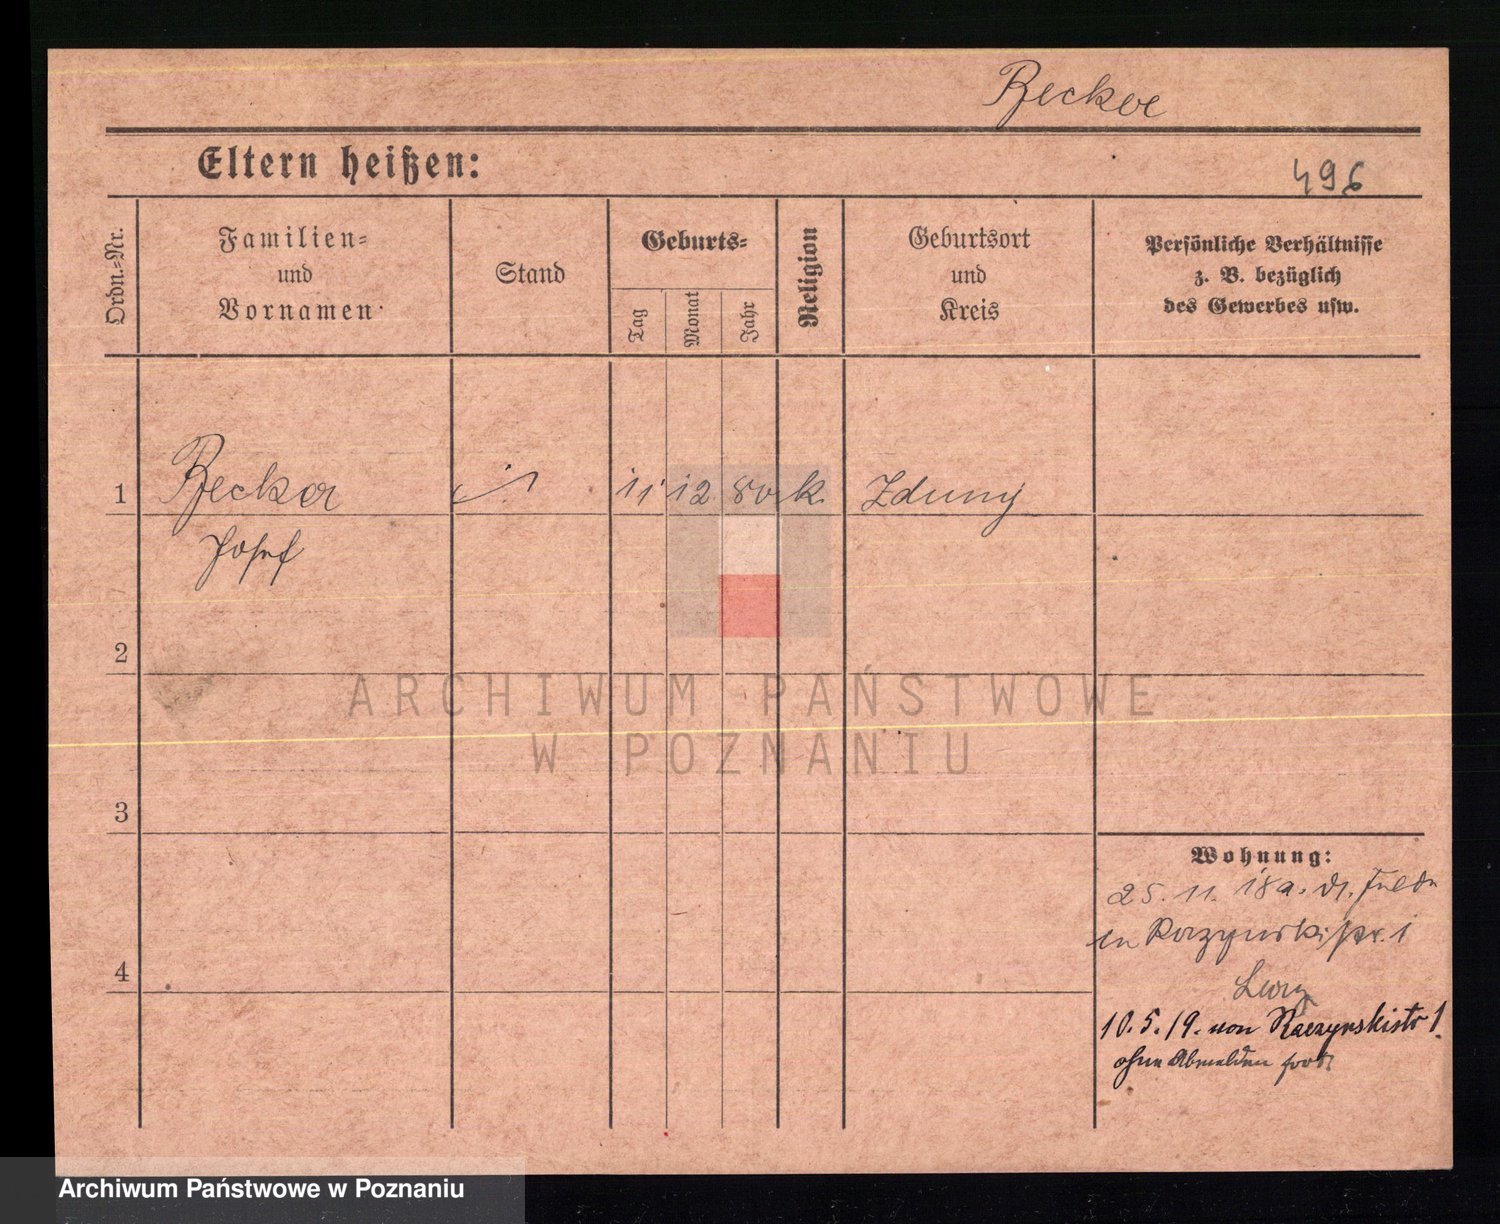 Becker
Eltern heißen:
496
Ordn.=Nr.
Familien=
und
Vornamen
Stand
Geburts=
Tag
Monat
Jahr
Religion
Geburtsort
und
Kreis
Persönliche Verhältnisse
z. B. bezüglich
des Gewerbes usw.
1
Becker
11 12 80 k. Zduny
Josef
2
ARCHIWUM PAŃSTWOWE
W POZNANIU
3
Wohnung:
25. 11. 18 a.
in
4
10. 5. 19. von Raczynskistr 1
ohne Abmelden fort
Archiwum Państwowe w Poznaniu